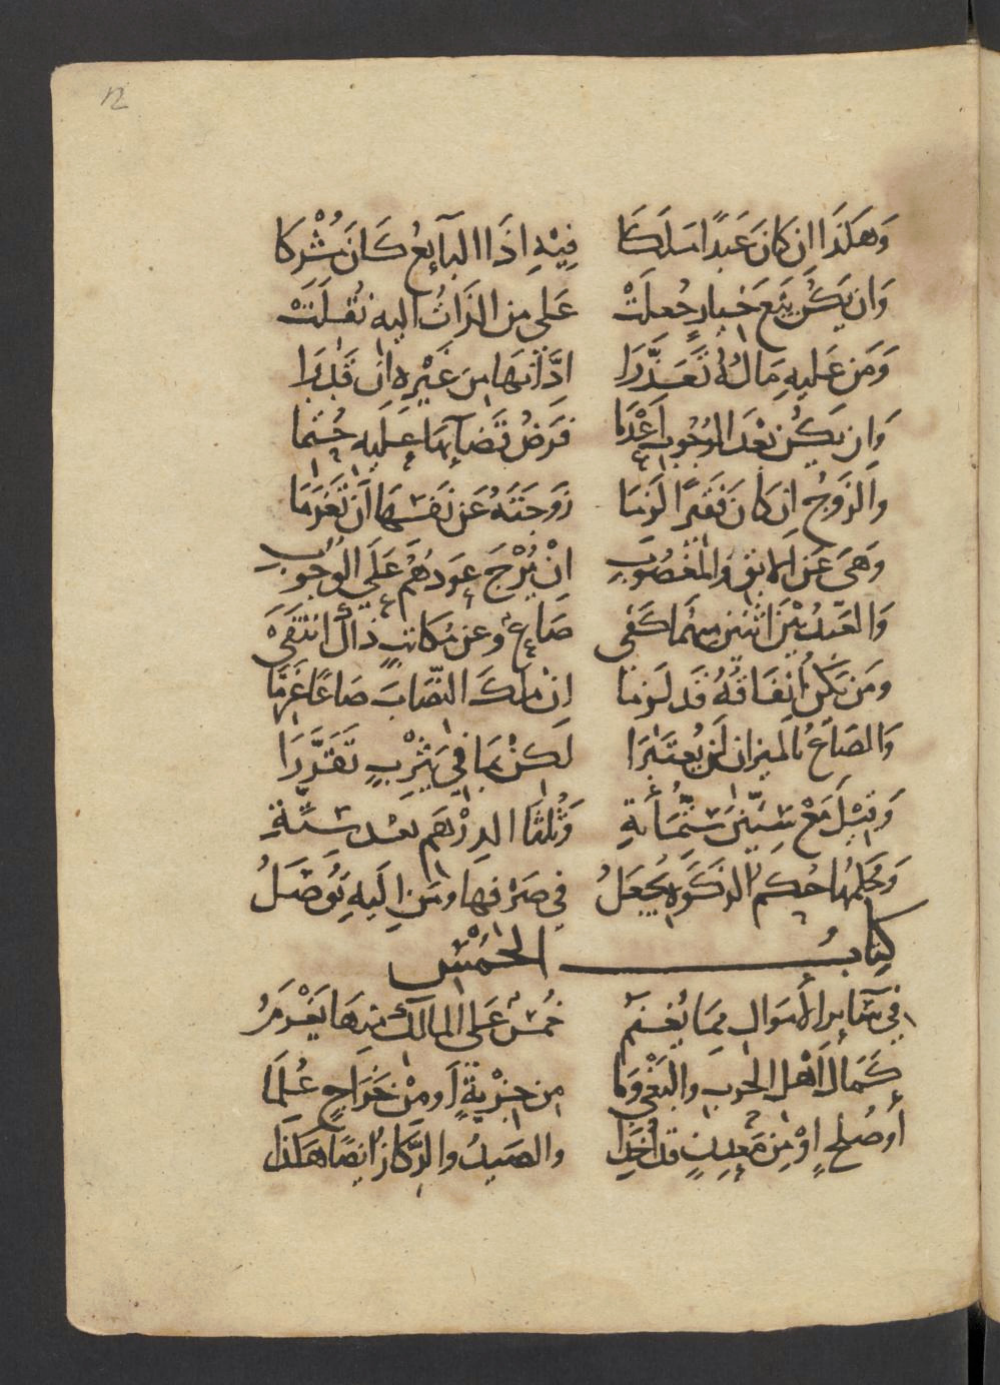 12
وَهكَذَا ان كانَ عَبدًا مَلَكَا فِيْهِ اذَا البآيعُ كَانَ مُشْرِكا
وَان يَكُن بَيعَ خيارٍ جُعلَتْ عَلى مِن الذَاتُ اليهِ نُقلَتْ
وَمَن عَليهِ مَالهُ تَعَذَّرَا ادَّانَهَا مِن غَيْرِهِ ان قَدَرَا
وَان يَكُن بَعْدَ الوُجُوبِ اَعْدَمَا فَرضُ قَضَآيهَا عَلَيهِ حُتِما
وَالزَوجُ ان كانَ فَقيرًا لَزِمَا زَوجَتَهُ عَن نَفسَهَا اَن تَغرَمَا
وَهىَ عَن الابقِ وَالمَغصُوبِ انْ يُرْجَ عَودُهُم عَلَي الوُجُوبِ
وَالعَبدُ بَيْنَ اثنَينِ مِنهُما كَفى صَاعٌ وعن مُكاتبٍ ذاكَ انتفَى
ومَن يَكن انفَاقُهُ قَد لَزِما ان مَلكَ النصَابَ صَاعًا غَرِمَا
وَالصَاعُ بالميزانِ لَن يُعتَبَرَا لكِنْ بمَا فِي يَثرِبٍ تَقَدَّرَا
وَقيلَ مَعْ سِتّينَ سِتُّمَايةِ وَثُلثَا الدِرْهَم بَعْد سِتَّةِ
وَحُكمُهَا حُكم الزكَوةِ يُجعَلُ فِي صَرْفِها ومَن اليهِ تُوصَلُ
كِتابُ الخُمْسِ
فِي سَآيرِ الأموَالِ ممَا يُغنَمُ خُمسٌ عَلى المالِك مِنهَا يَغْرَمُ
كَمَال اَهلِ الحربِ والبَغْي وَمَا مِن جِزْيةٍ اَو مِنْ خَرَاجٍ عُلمَا
أو صُلحٍ اوْ مِن مَعدِنٍ قد اُخِذَا والصَيدُ والرِّكازُ ايضًا هكذَا